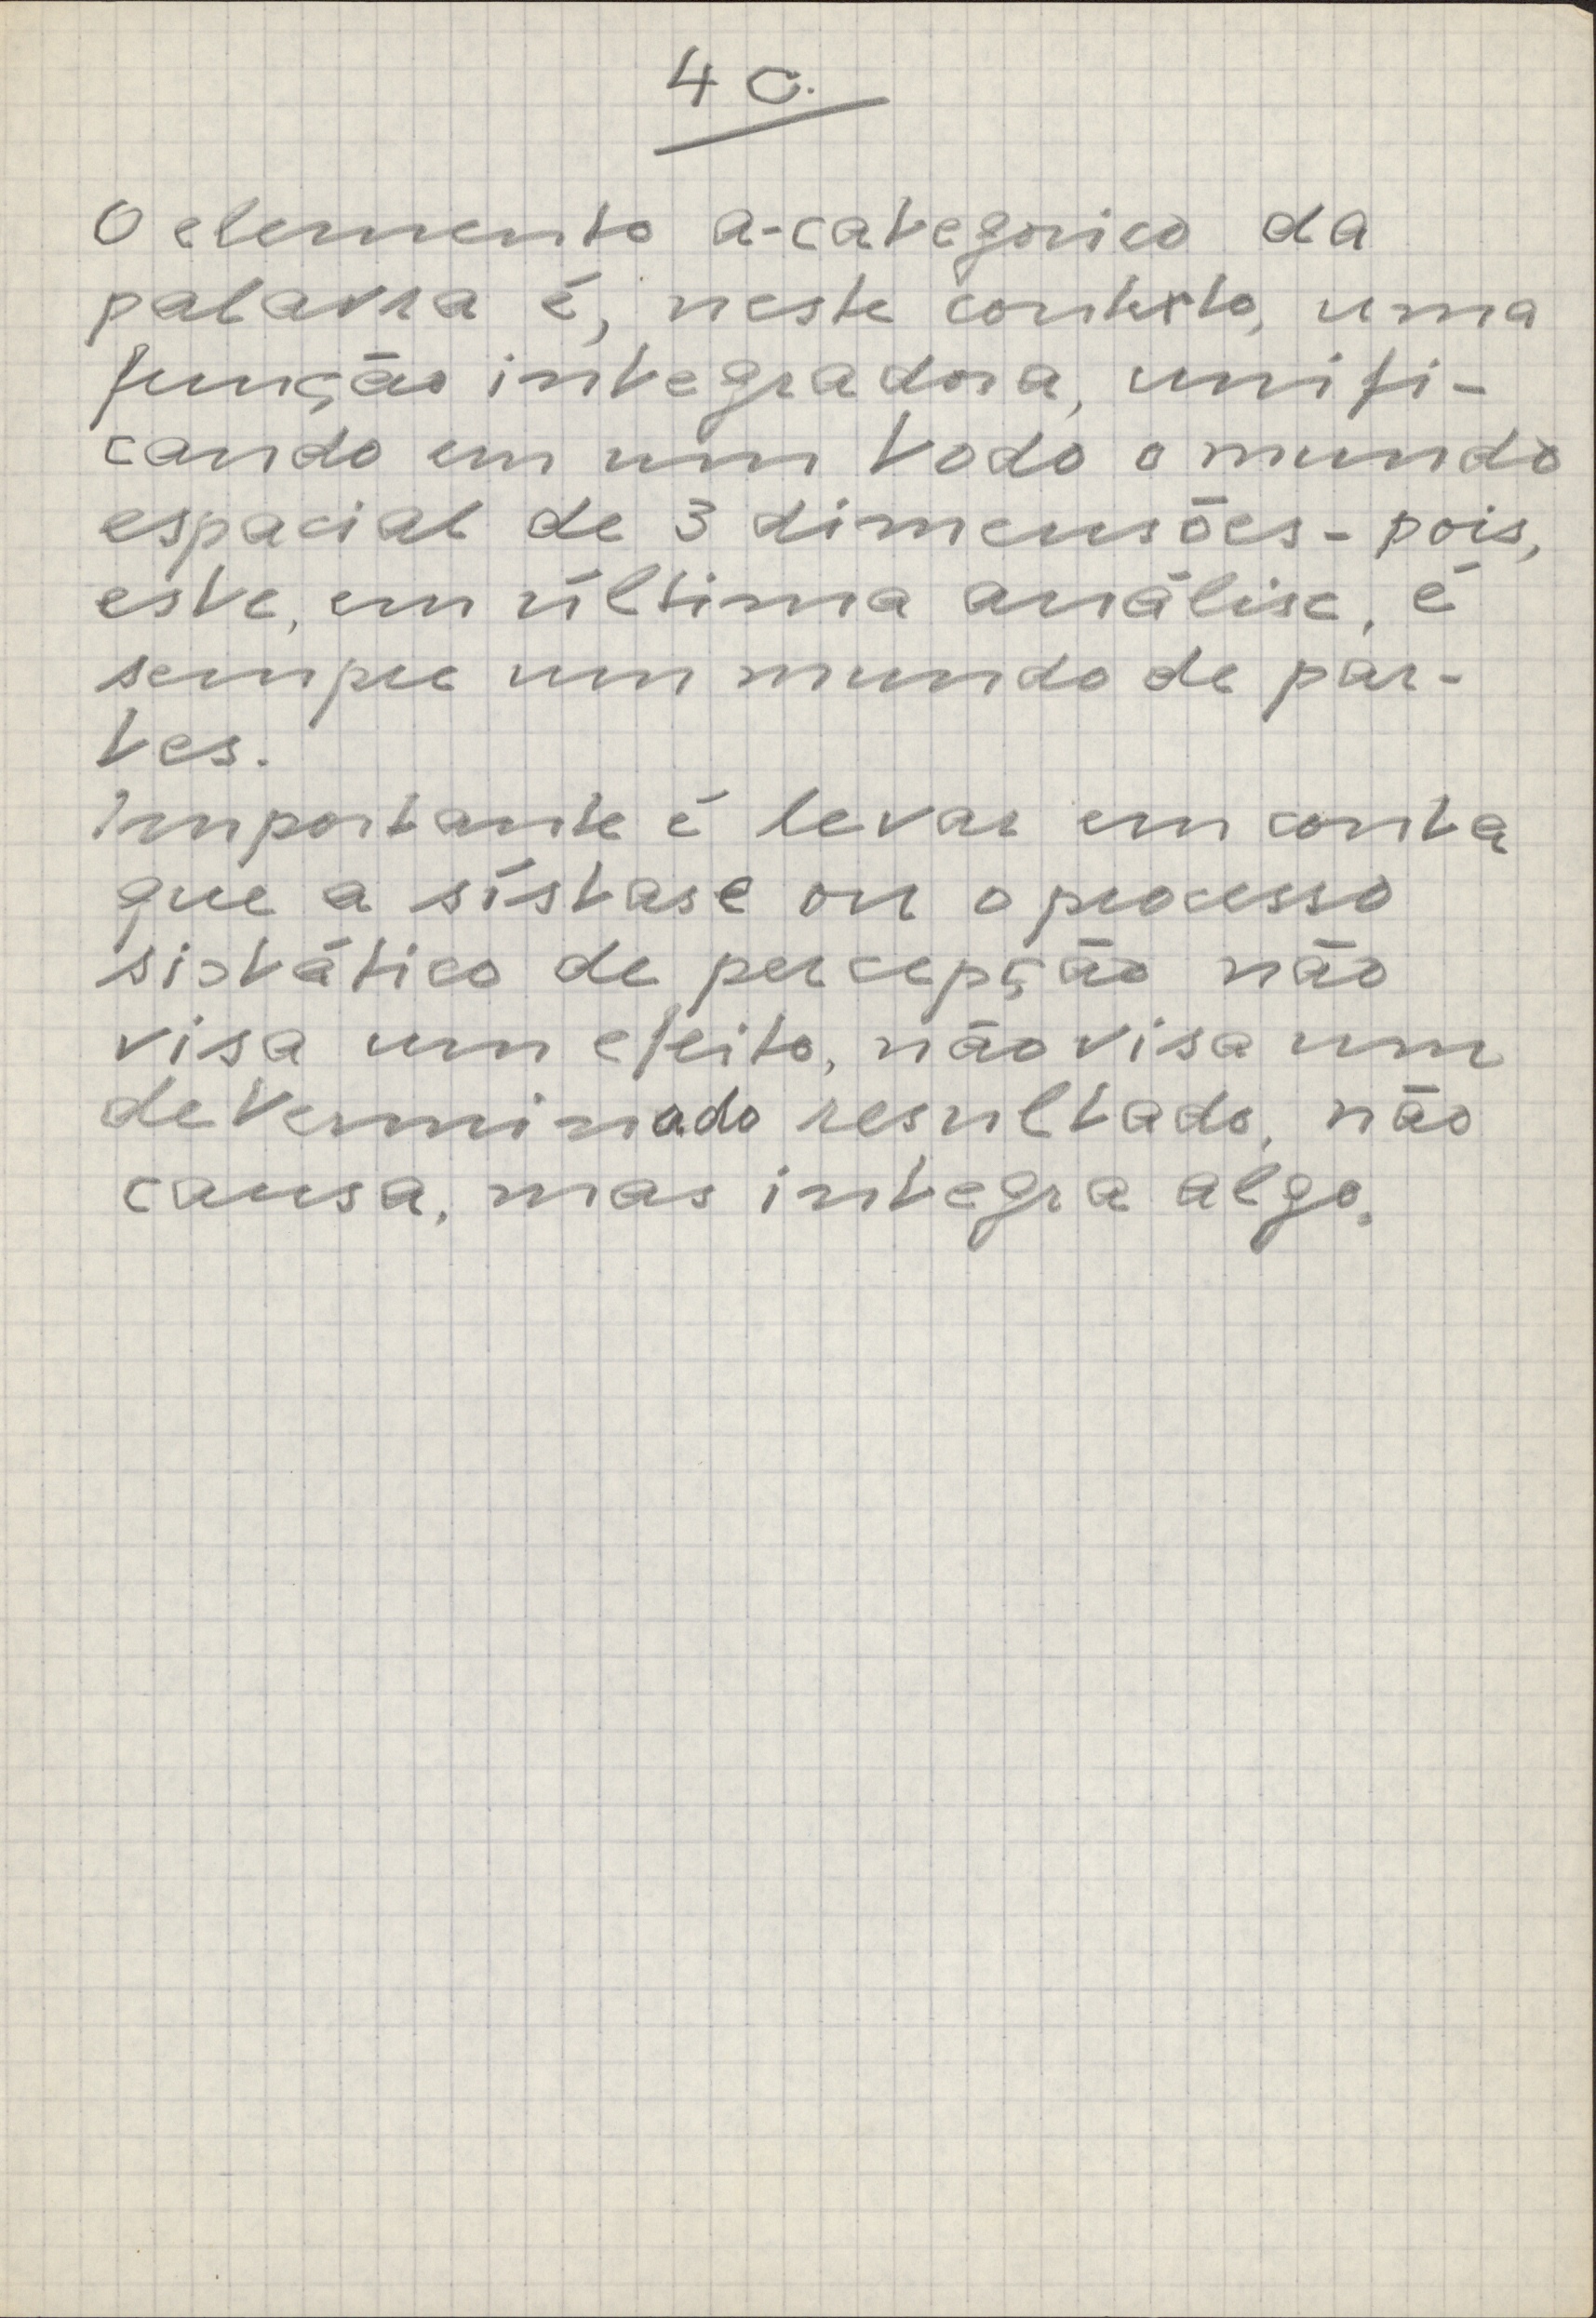 4 c.
O elemento a-categorico da
palavra é, neste contexto, uma
função integradora, unifi-
cando em um todo o mundo
espacial de 3 dimensões - pois,
este, em última análise, é
sempre um mundo de par-
tes.
Importante é levar em conta
que a sístase ou o processo
sistático de percepção não
visa um efeito, não visa um
determinado resultado, não
causa, mas integra algo.